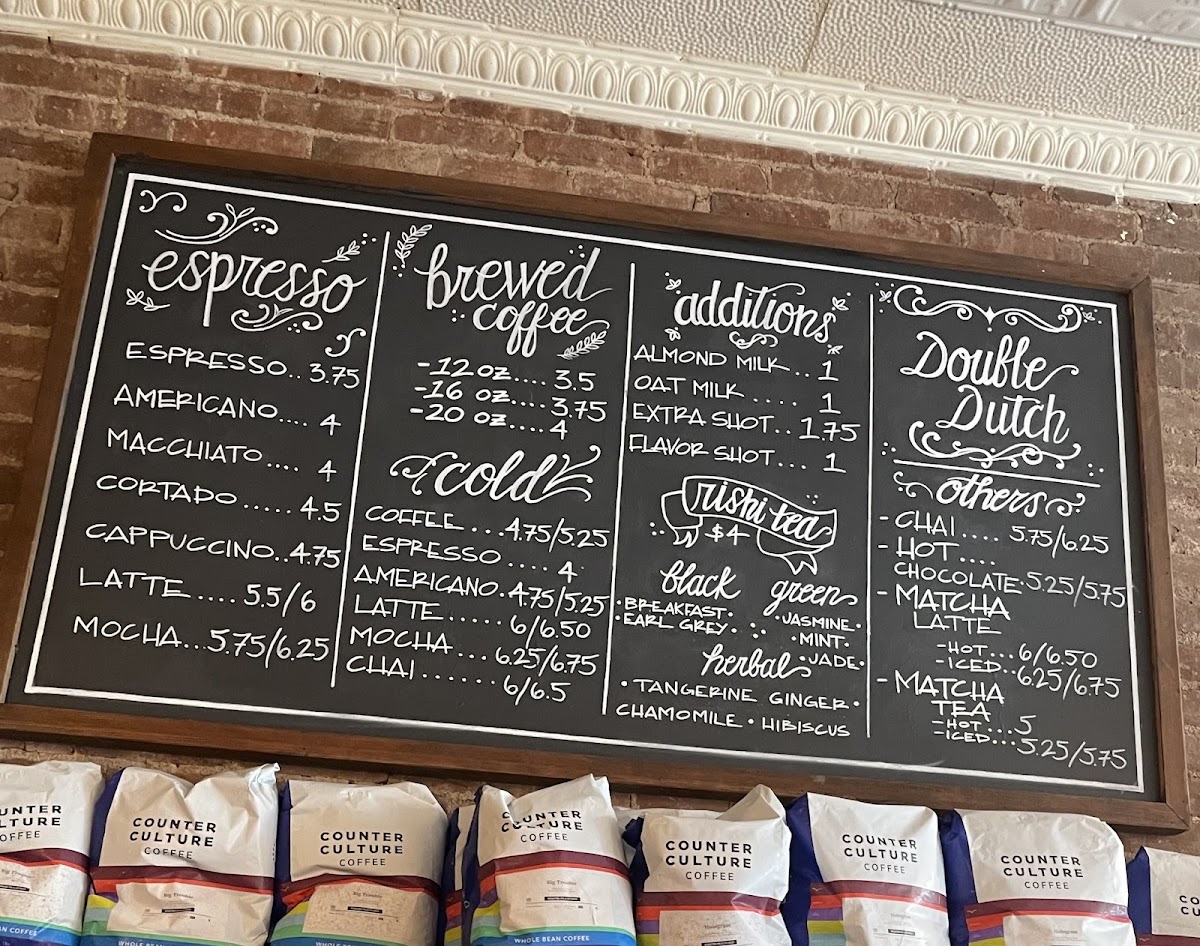 espresso
ESPRESSO.. 3.75
AMERICANO.... 4
MACCHIATO.... 4
CORTADO..... 4.5
CAPPUCCINO..4.75
LATTE.... 5.5/6
MOCHA...5.75/6.25
brewed
coffee
-12 oz.... 3.5
-16 oz.... 3.75
-20 oz.... 4
cold
COFFEE...4.75/5.25
ESPRESSO.... 4
AMERICANO.4.75/5.25
LATTE..... 6/6.50
MOCHA... 6.25/6.75
CHAI...... 6/6.5
additions
ALMOND MILK.. 1
OAT MILK .... 1
EXTRA SHOT.. 1.75
FLAVOR SHOT... 1
rishi tea
$4
black
•BREAKFAST•
•EARL GREY•
green
•JASMINE•
MINT•
•JADE•
herbal
• TANGERINE GINGER•
CHAMOMILE • HIBISCUS
Double
Dutch
others
- CHAI.... 5.75/6.25
- HOT....
CHOCOLATE•5.25/5.75
- MATCHA
LATTE
-HOT...6/6.50
-ICED...6.25/6.75
- MATCHA
TEA
-HOT...5
-ICED...5.25/5.75
UNTER
LTURE
COFFEE
AN COFFEE
COUNTER
CULTURE
COFFEE
Big Trouble
WHOLE BEAN COFFEE
COUNTER
CULTURE
COFFEE
Big Trouble
COUNTER
CULTURE
COFFEE
Big Trouble
WHOLE BEAN COFFEE
COUNTER
CULTURE
COFFEE
Hologram
COUNTER
CULTURE
COFFEE
Hologram
COUNTER
CULTURE
COFFEE
Hologram
COUN
CULT
COF